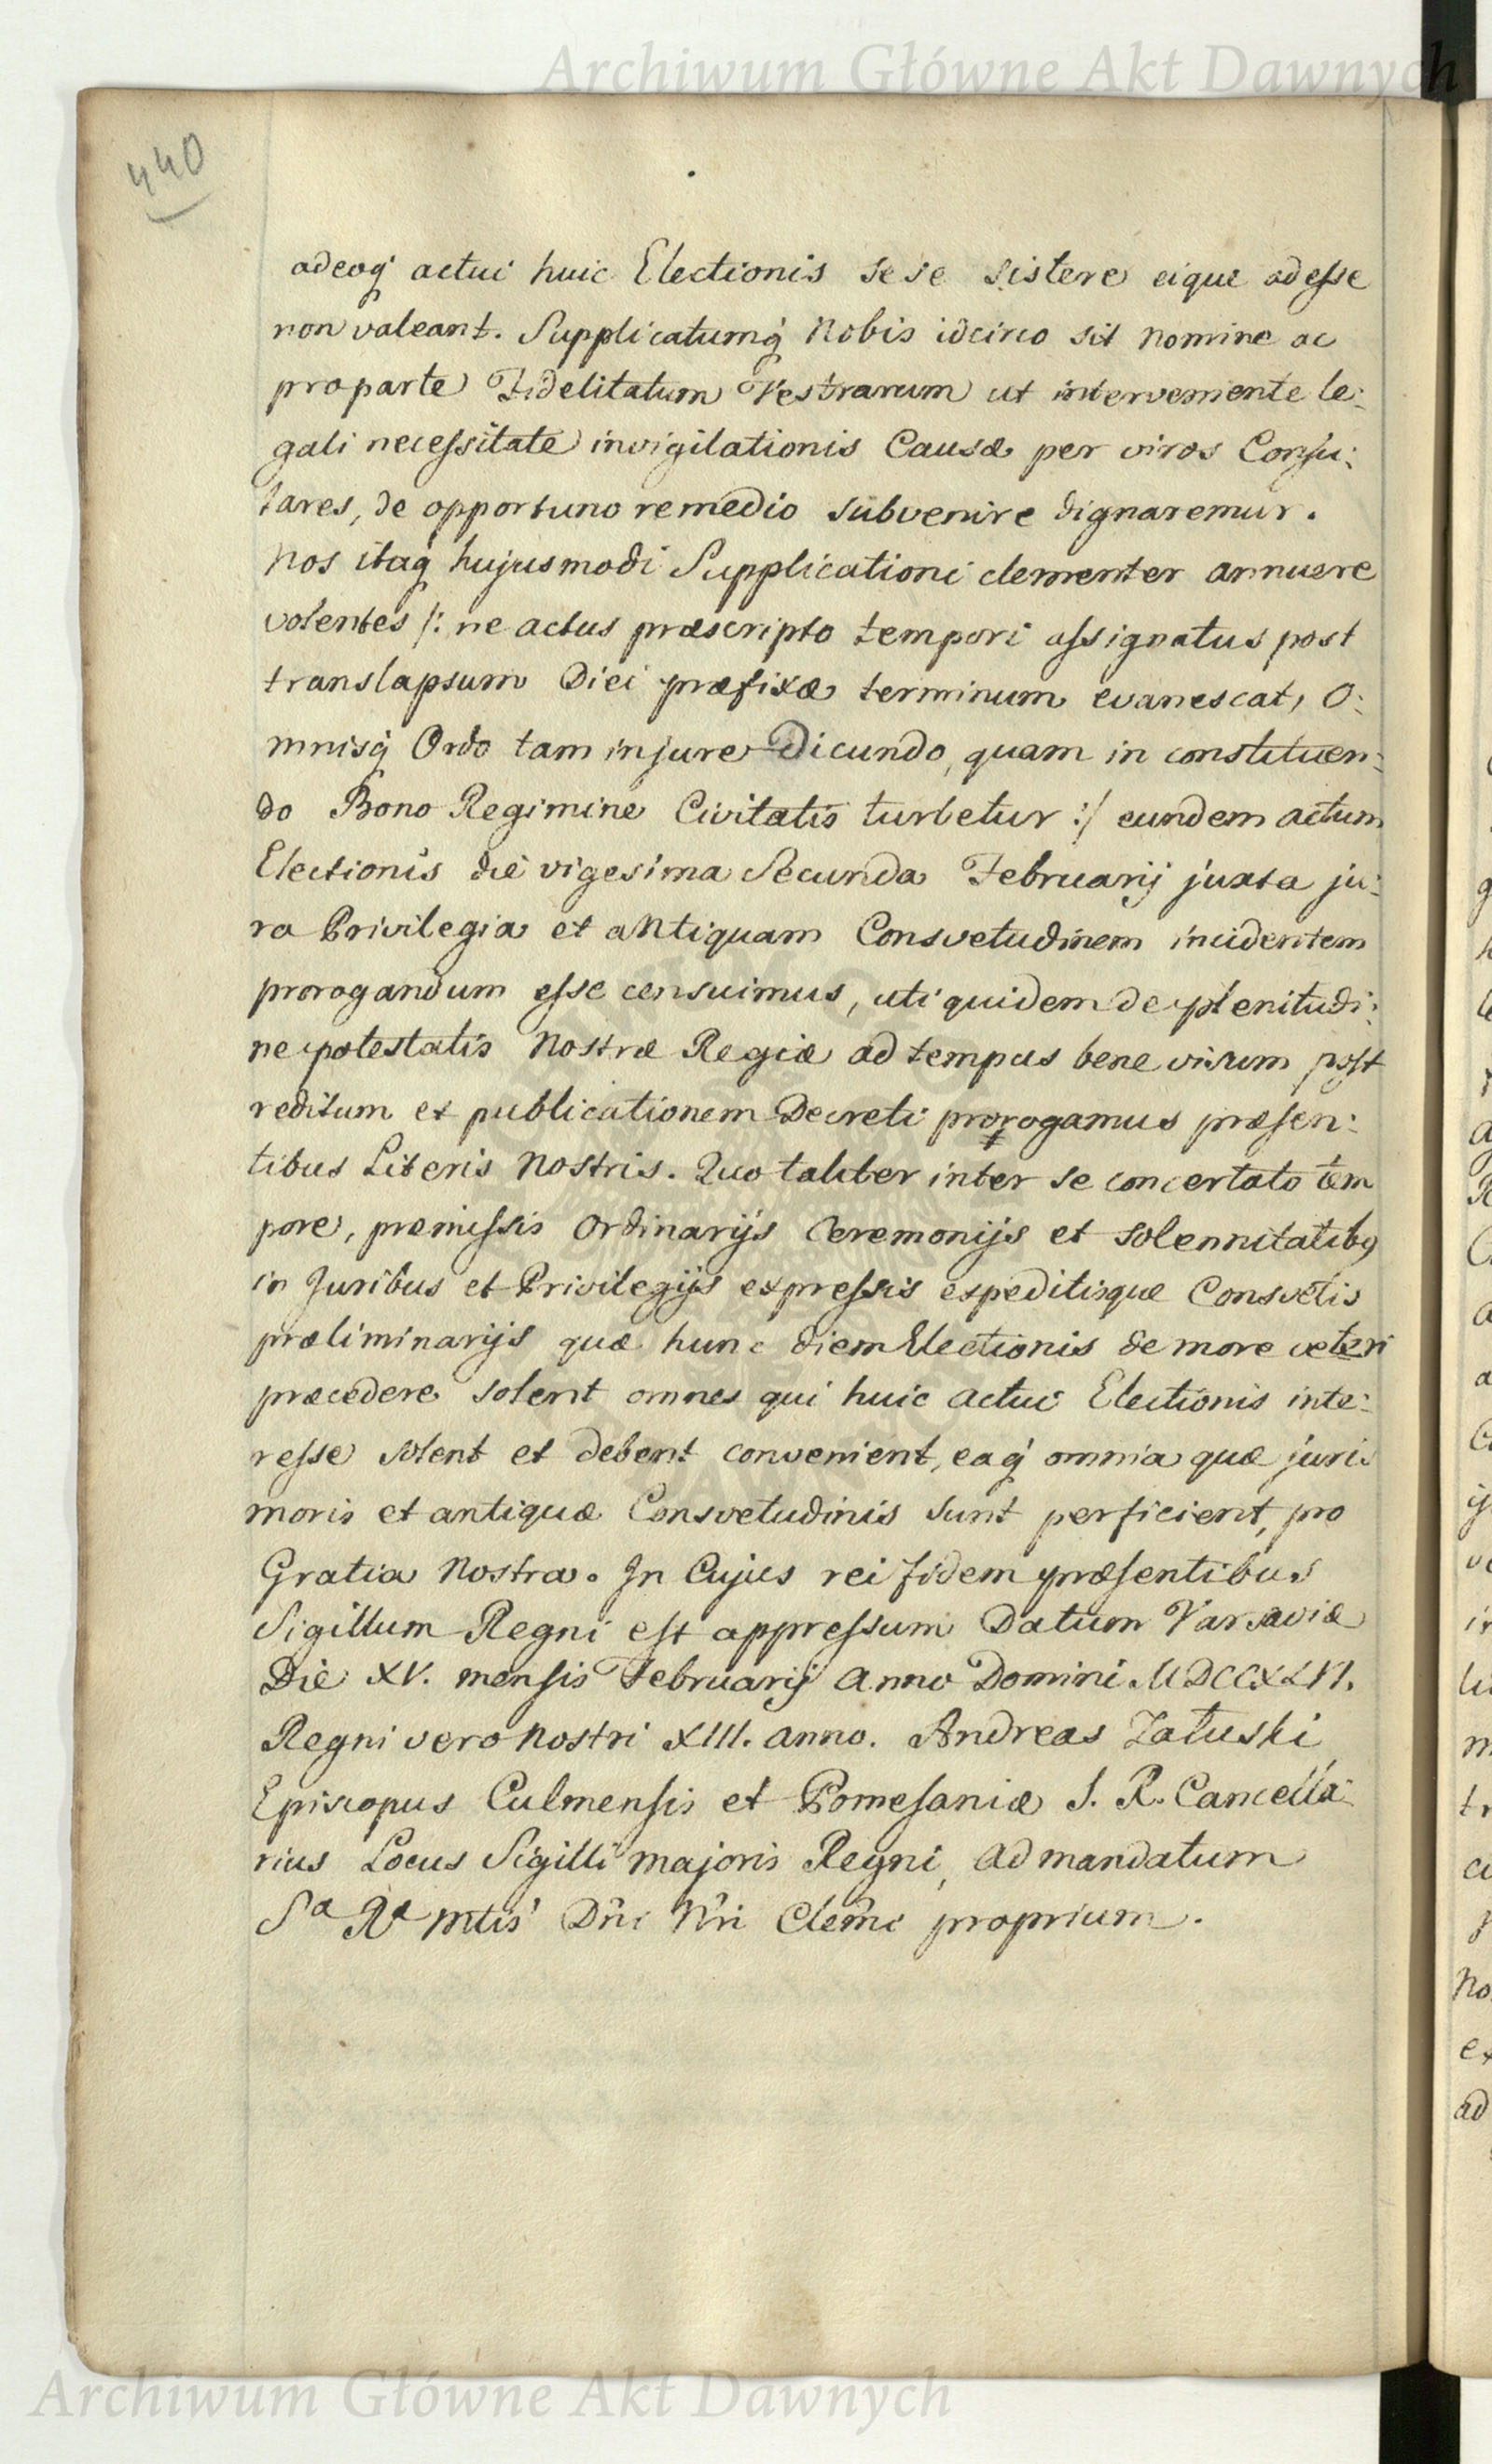 Archiwum Główne Akt Dawnych
440
adeoq́ actui huic Electionis sese sistere eique adesse
non valeant. Supplicatumq́ Nobis idcirco sit nomine ac
pro parte Fidelitatum Vestrarum ut interveniente le:
gali necessitate invigilationis Causæ per viros Consu:
lares, de opportuno remedio subvenire dignaremur.
Nos itaq́ hujusmodi Supplicationi clementer annuere
volentes /: ne actus præscripto tempori assignatus post
translapsum Diei præfixæ terminum evanescat, O:
mnisq́ Ordo tam in jure Dicundo, quam in constituen:
do Bono Regimine Civitatis turbetur :/ eundem actum
Electionis die vigesima Secunda Februarij juxta ju:
ra Privilegia et antiquam Consvetudinem incidentem
prorogandum esse censuimus, uti quidem de plenitudi:
ne potestatis Nostræ Regiæ ad tempus bene visum post
reditum et publicationem Decreti prorogamus præsen:
tibus Literis Nostris. Quo taliter inter se concertato tem
pore, præmissis Ordinarijs Ceremonijs et solennitatibus
in Juribus et Privilegijs expressis expeditisque Consvetis
præliminarijs quæ hunc diem Electionis de more veteri
præcedere solent omnes qui huic actui Electionis inte:
resse solent et debent convenient, eaq́ omnia quæ juris
moris et antiquæ Consvetudinis sunt perficient, pro
Gratia Nostra. In Cujus rei fidem præsentibus
Sigillum Regni est appressum Datum Varsaviæ
Die XV. mensis Februarij Anno Domini MDCCXLVI.
Regni vero Nostri XIII. anno. Andreas Załuski
Episcopus Culmensis et Pomesaniæ S. R. Cancella:
rius Locus Sigilli majoris Regni, Ad mandatum
Sᵃ Rᵃ Mtis Dni Nri Clemi proprium.
Archiwum Główne Akt Dawnych